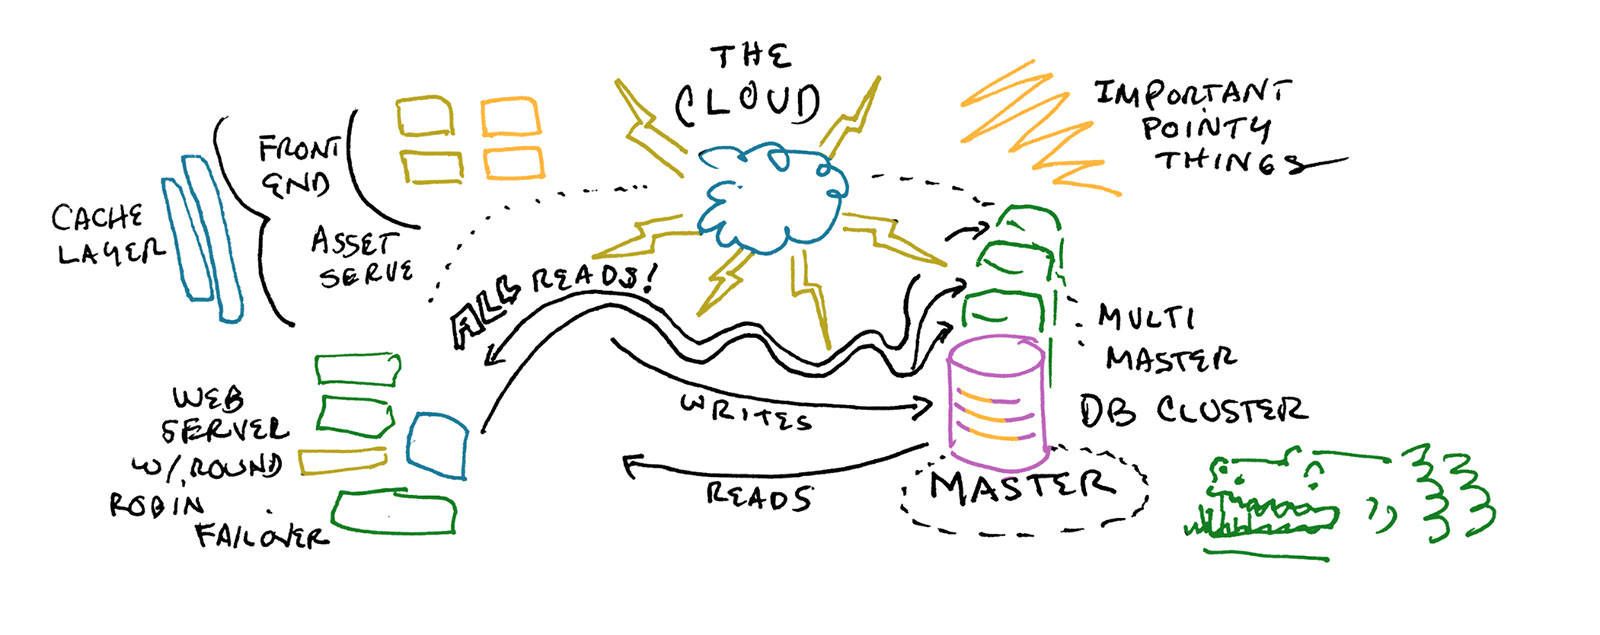 THE
CLOUD
IMPORTANT
POINTY
THINGS
FRONT
END
CACHE
LAYER
ASSET
SERVE
ALL READS!
MULTI
MASTER
DB CLUSTER
WEB
SERVER
W/ ROUND
ROBIN
FAILOVER
WRITES
READS
MASTER